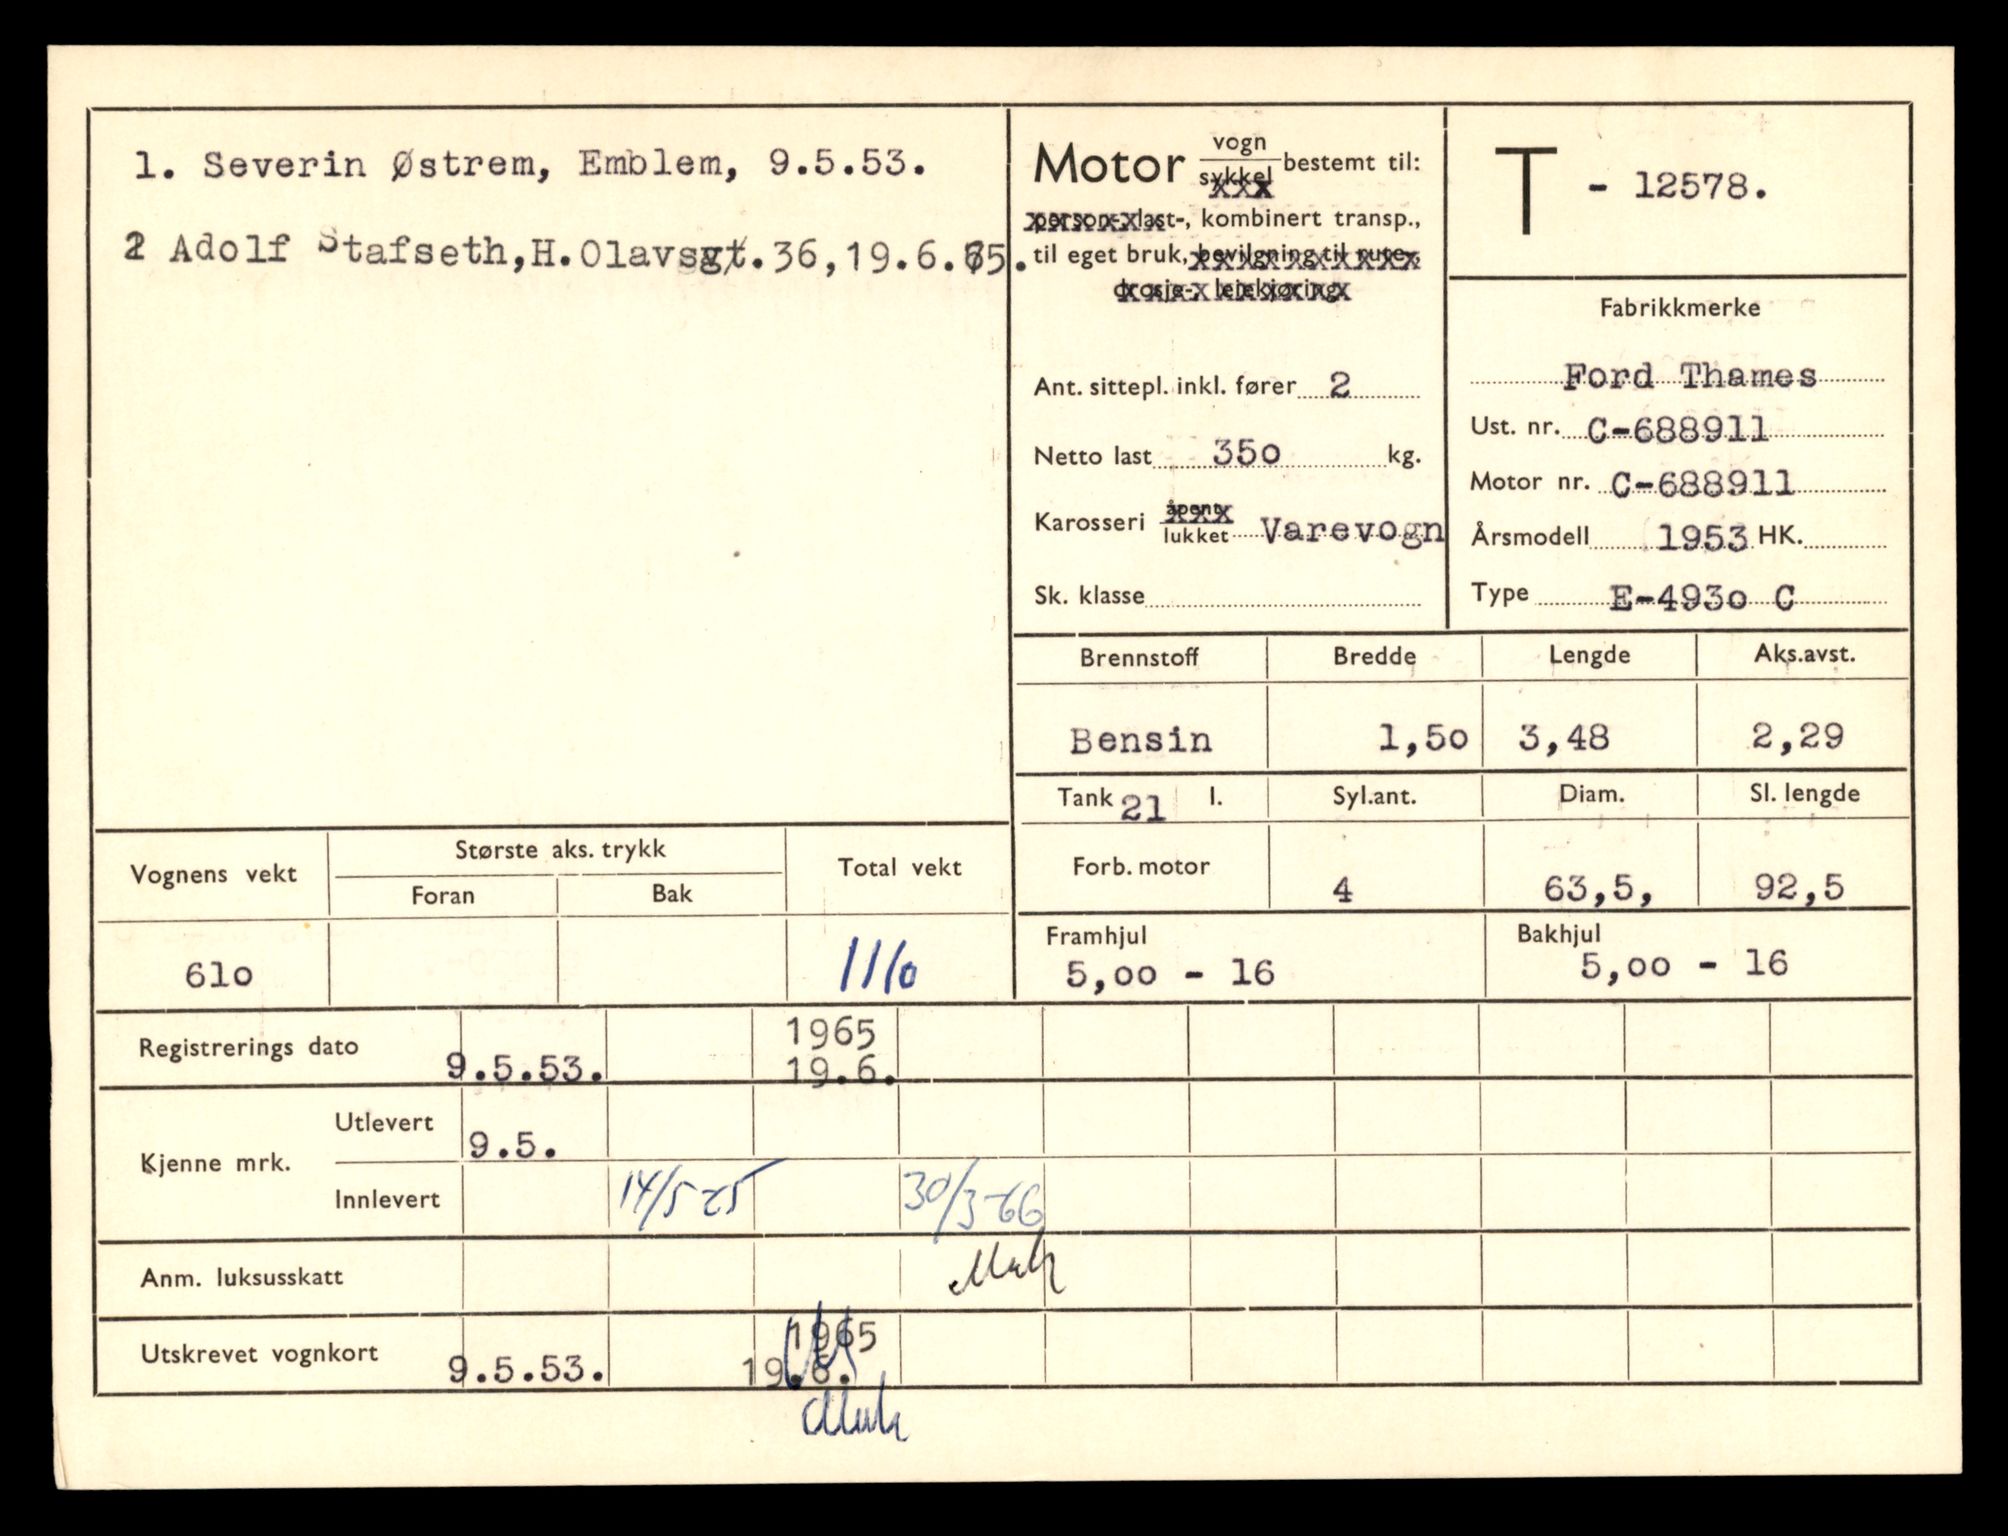 1. Severin Østrem, Emblem, 9.5.53.
2 Adolf Stafseth,H.Olavsgt.36,19.6.65.
Motor vogn
sykkel bestemt til:
person-, last-, kombinert transp.,
til eget bruk, bevilgning til rute-,
drosje-, leiekjøring.
Ant. sittepl. inkl. fører 2
Netto last 350 kg.
Karosseri åpent
lukket Varevogn
Sk. klasse
T - 12578.
Fabrikkmerke
Ford Thames
Ust. nr. C-688911
Motor nr. C-688911
Årsmodell 1953 HK.
Type E-493o C
Brennstoff Bredde Lengde Aks.avst.
Bensin 1,50 3,48 2,29
Tank 21 l. Syl.ant. Diam. Sl. lengde
Forb. motor 4 63,5, 92,5
Framhjul Bakhjul
5,00 - 16 5,00 - 16
Vognens vekt Største aks. trykk Total vekt
Foran Bak
610 1110
1965
Registrerings dato 9.5.53. 19.6.
Kjenne mrk. Utlevert 9.5.
Innlevert 14/5-65 30/3-66
Anm. luksusskatt
1965
Utskrevet vognkort 9.5.53. 19.6.